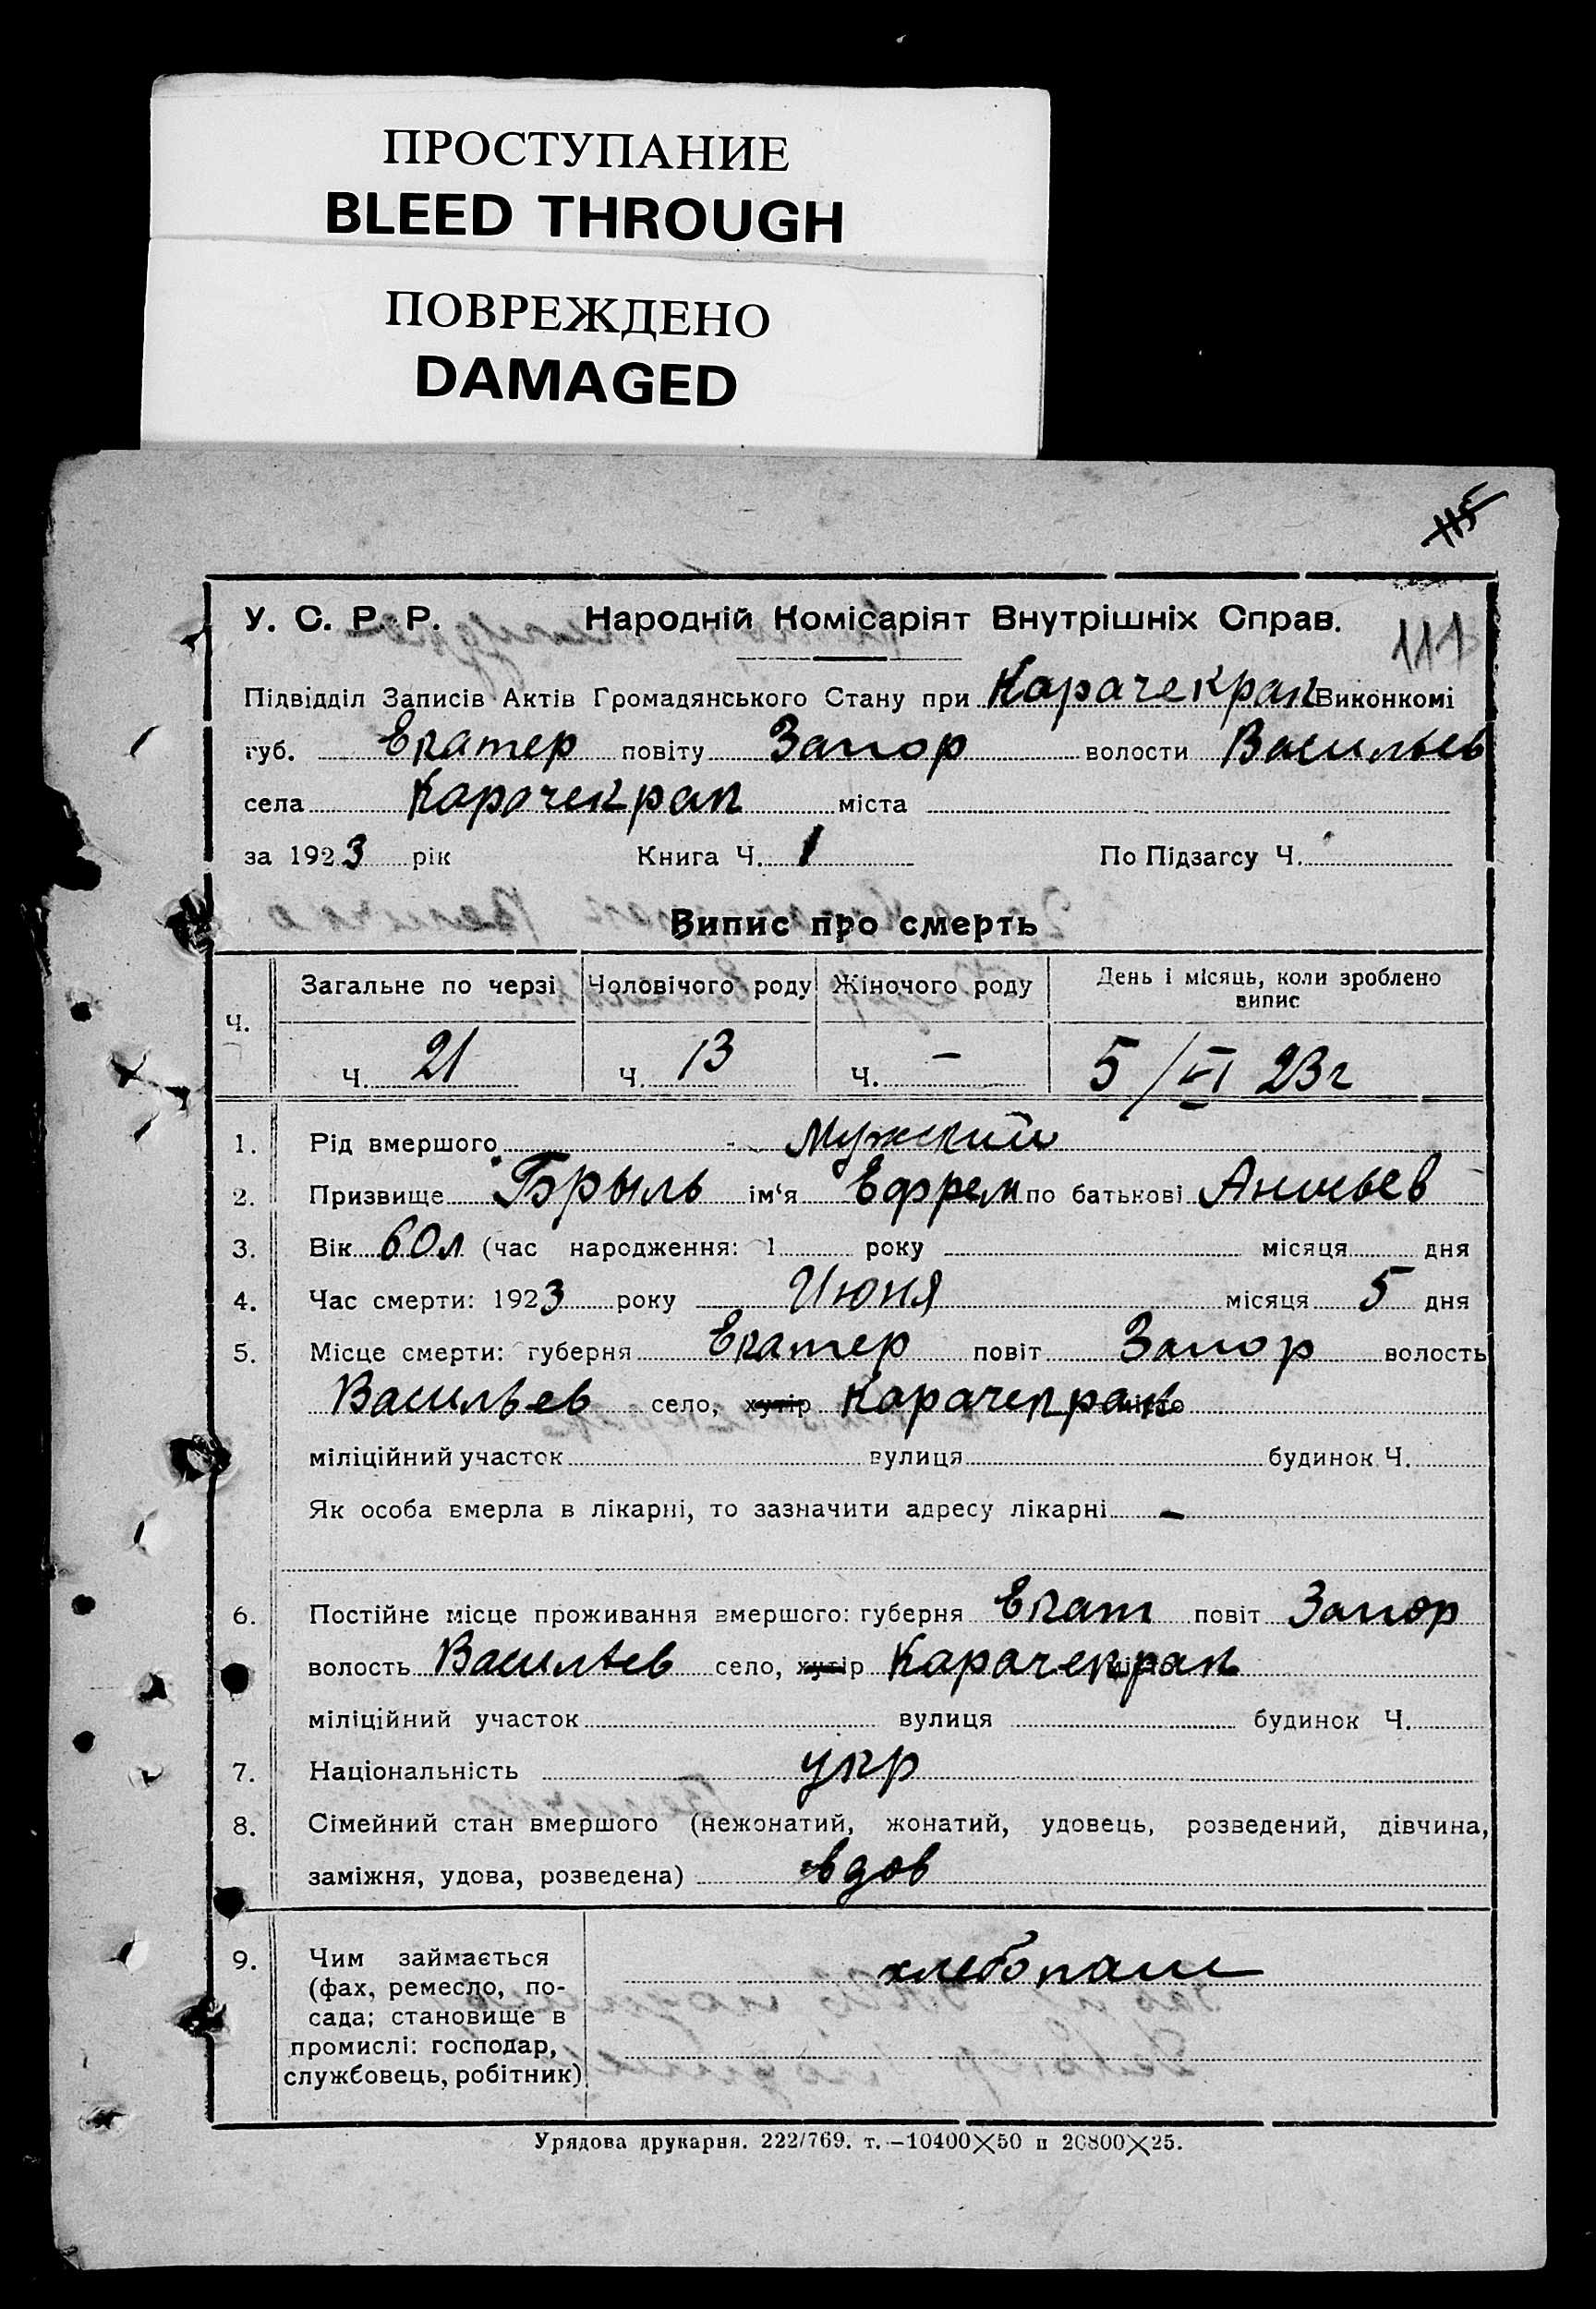 ПРОСТУПАНИЕ
BLEED THROUGH
ПОВРЕЖДЕНО
DAMAGED
115
У. С. Р. Р. Народній Комісаріят Внутрішніх Справ.
111
Підвідділ Записів Актів Громадянського Стану при Карачекрак Виконкомі
губ. Екатер повіту Запор волости Васильев
села Карачекрак міста
за 1923 рік Книга Ч. 1 По Підзагсу Ч.
Випис про смерть
Ч. Загальне по черзі Чоловічого роду Жіночого роду День і місяць, коли зроблено випис
Ч. 21 Ч. 13 Ч. – 5/VI 23г
1. Рід вмершого Мужский
2. Призвище Брыль ім'я Ефрем по батькові
3. Вік 60л (час народження: 1 року місяця дня
4. Час смерти: 1923 року Июня місяця 5 дня
5. Місце смерти: губерня Екатер повіт Запор волость
Васильев село, хутір Карачекрак місто
міліційний участок вулиця будинок Ч.
Як особа вмерла в лікарні, то зазначити адресу лікарні –
6. Постійне місце проживання вмершого: губерня Екат повіт Запор
волость Васильев село, хутір Карачекрак
міліційний участок вулиця будинок Ч.
7. Національність укр
8. Сімейний стан вмершого (нежонатий, жонатий, удовець, розведений, дівчина,
заміжня, удова, розведена) вдов
9. Чим займається хлебопаш
(фах, ремесло, по-
сада; становище в
промислі: господар,
службовець, робітник)
Урядова друкарня. 222/769. т.–10400×50 п 20800×25.